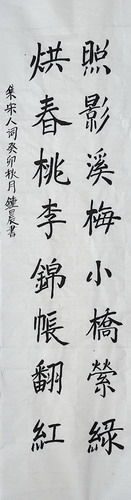 照影溪梅小橋縈綠
烘春桃李錦帳翻紅
集宋人詞癸卯秋月鍾晨書